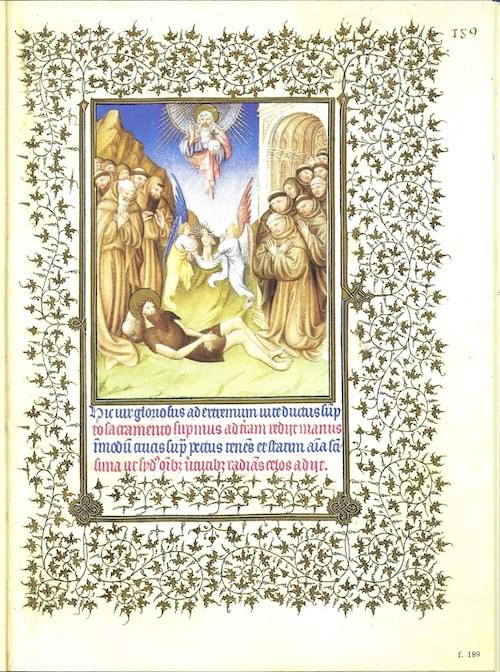 189
Hic vir gloriosus ad extremum vite ductus sūp
to sacramento supinus ad t̄ram redijt manus
īmodū crucis sup̄ pectus tenēs et statim aīa sc̄
sima ut syd᷒ oībʒ virtutibʒ radiās celos adijt.
f. 189